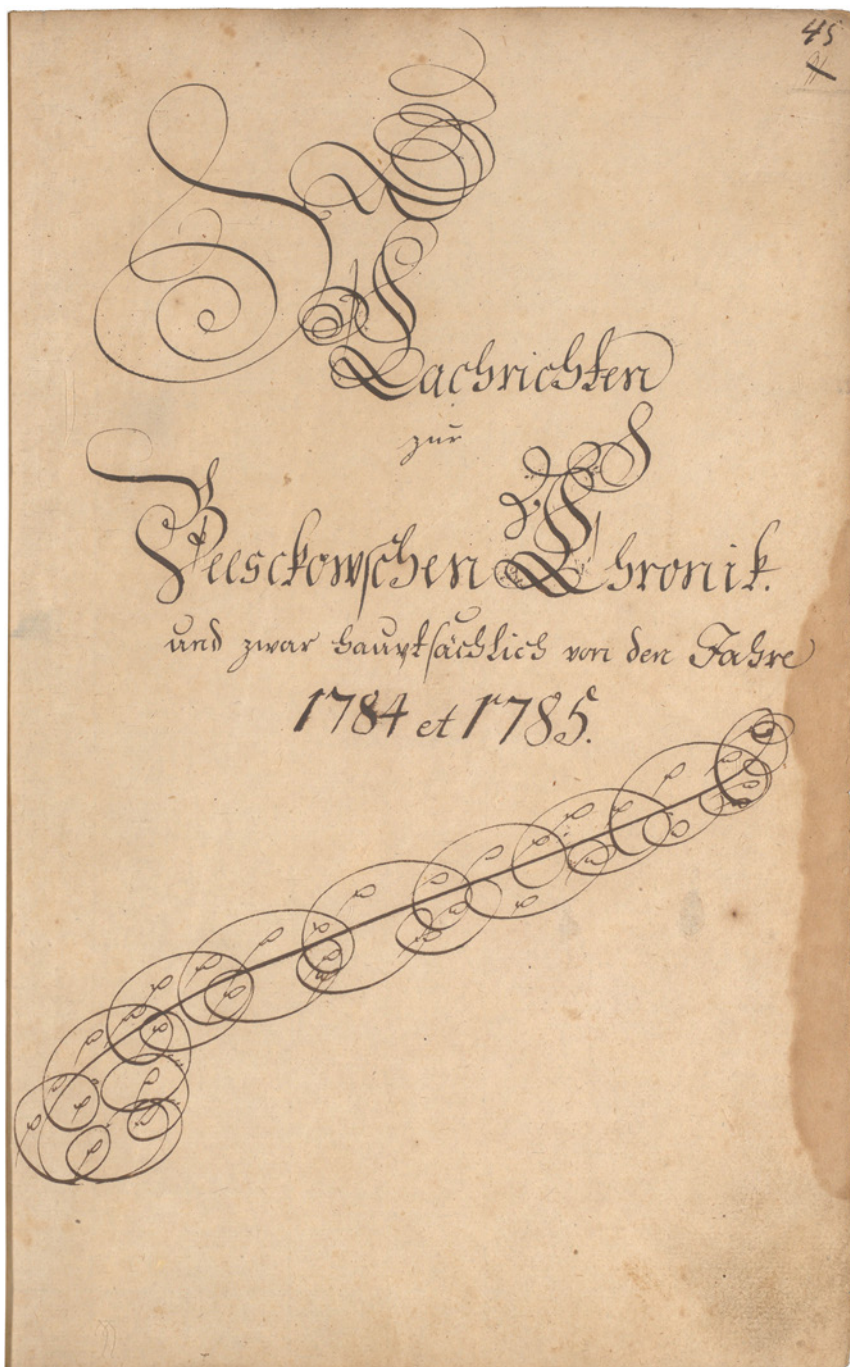 45
Nachrichten
zur
Beesckowschen Chronik.
und zwar hauptsächlich von den Jahre
1784 et 1785.